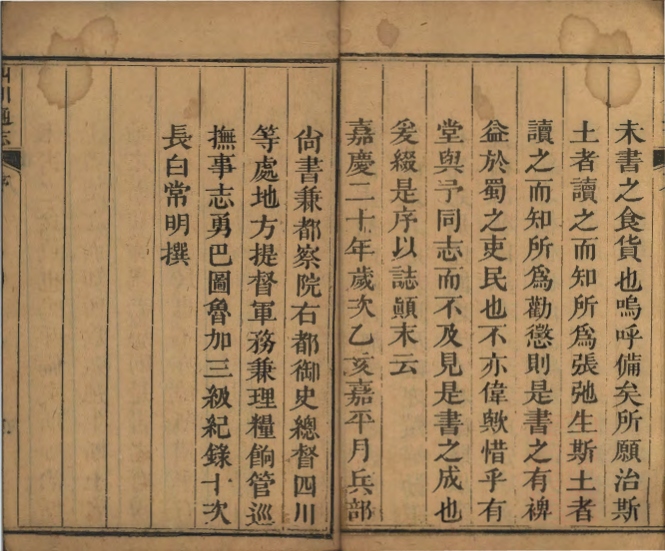 未書之食貨也嗚呼備矣所願治斯
土者讀之而知所為張弛生斯土者
讀之而知所為勸懲則是書之有裨
益於蜀之吏民也不亦偉歟惜乎有
堂與予同志而不及見是書之成也
爰綴是序以誌顛末云
嘉慶二十年歲次乙亥嘉平月兵部
尙書兼都察院右都御史總督四川
等處地方提督軍務兼理糧餉管巡
撫事志勇巴圖魯加三級紀錄十次
長白常明撰
四川通志
序